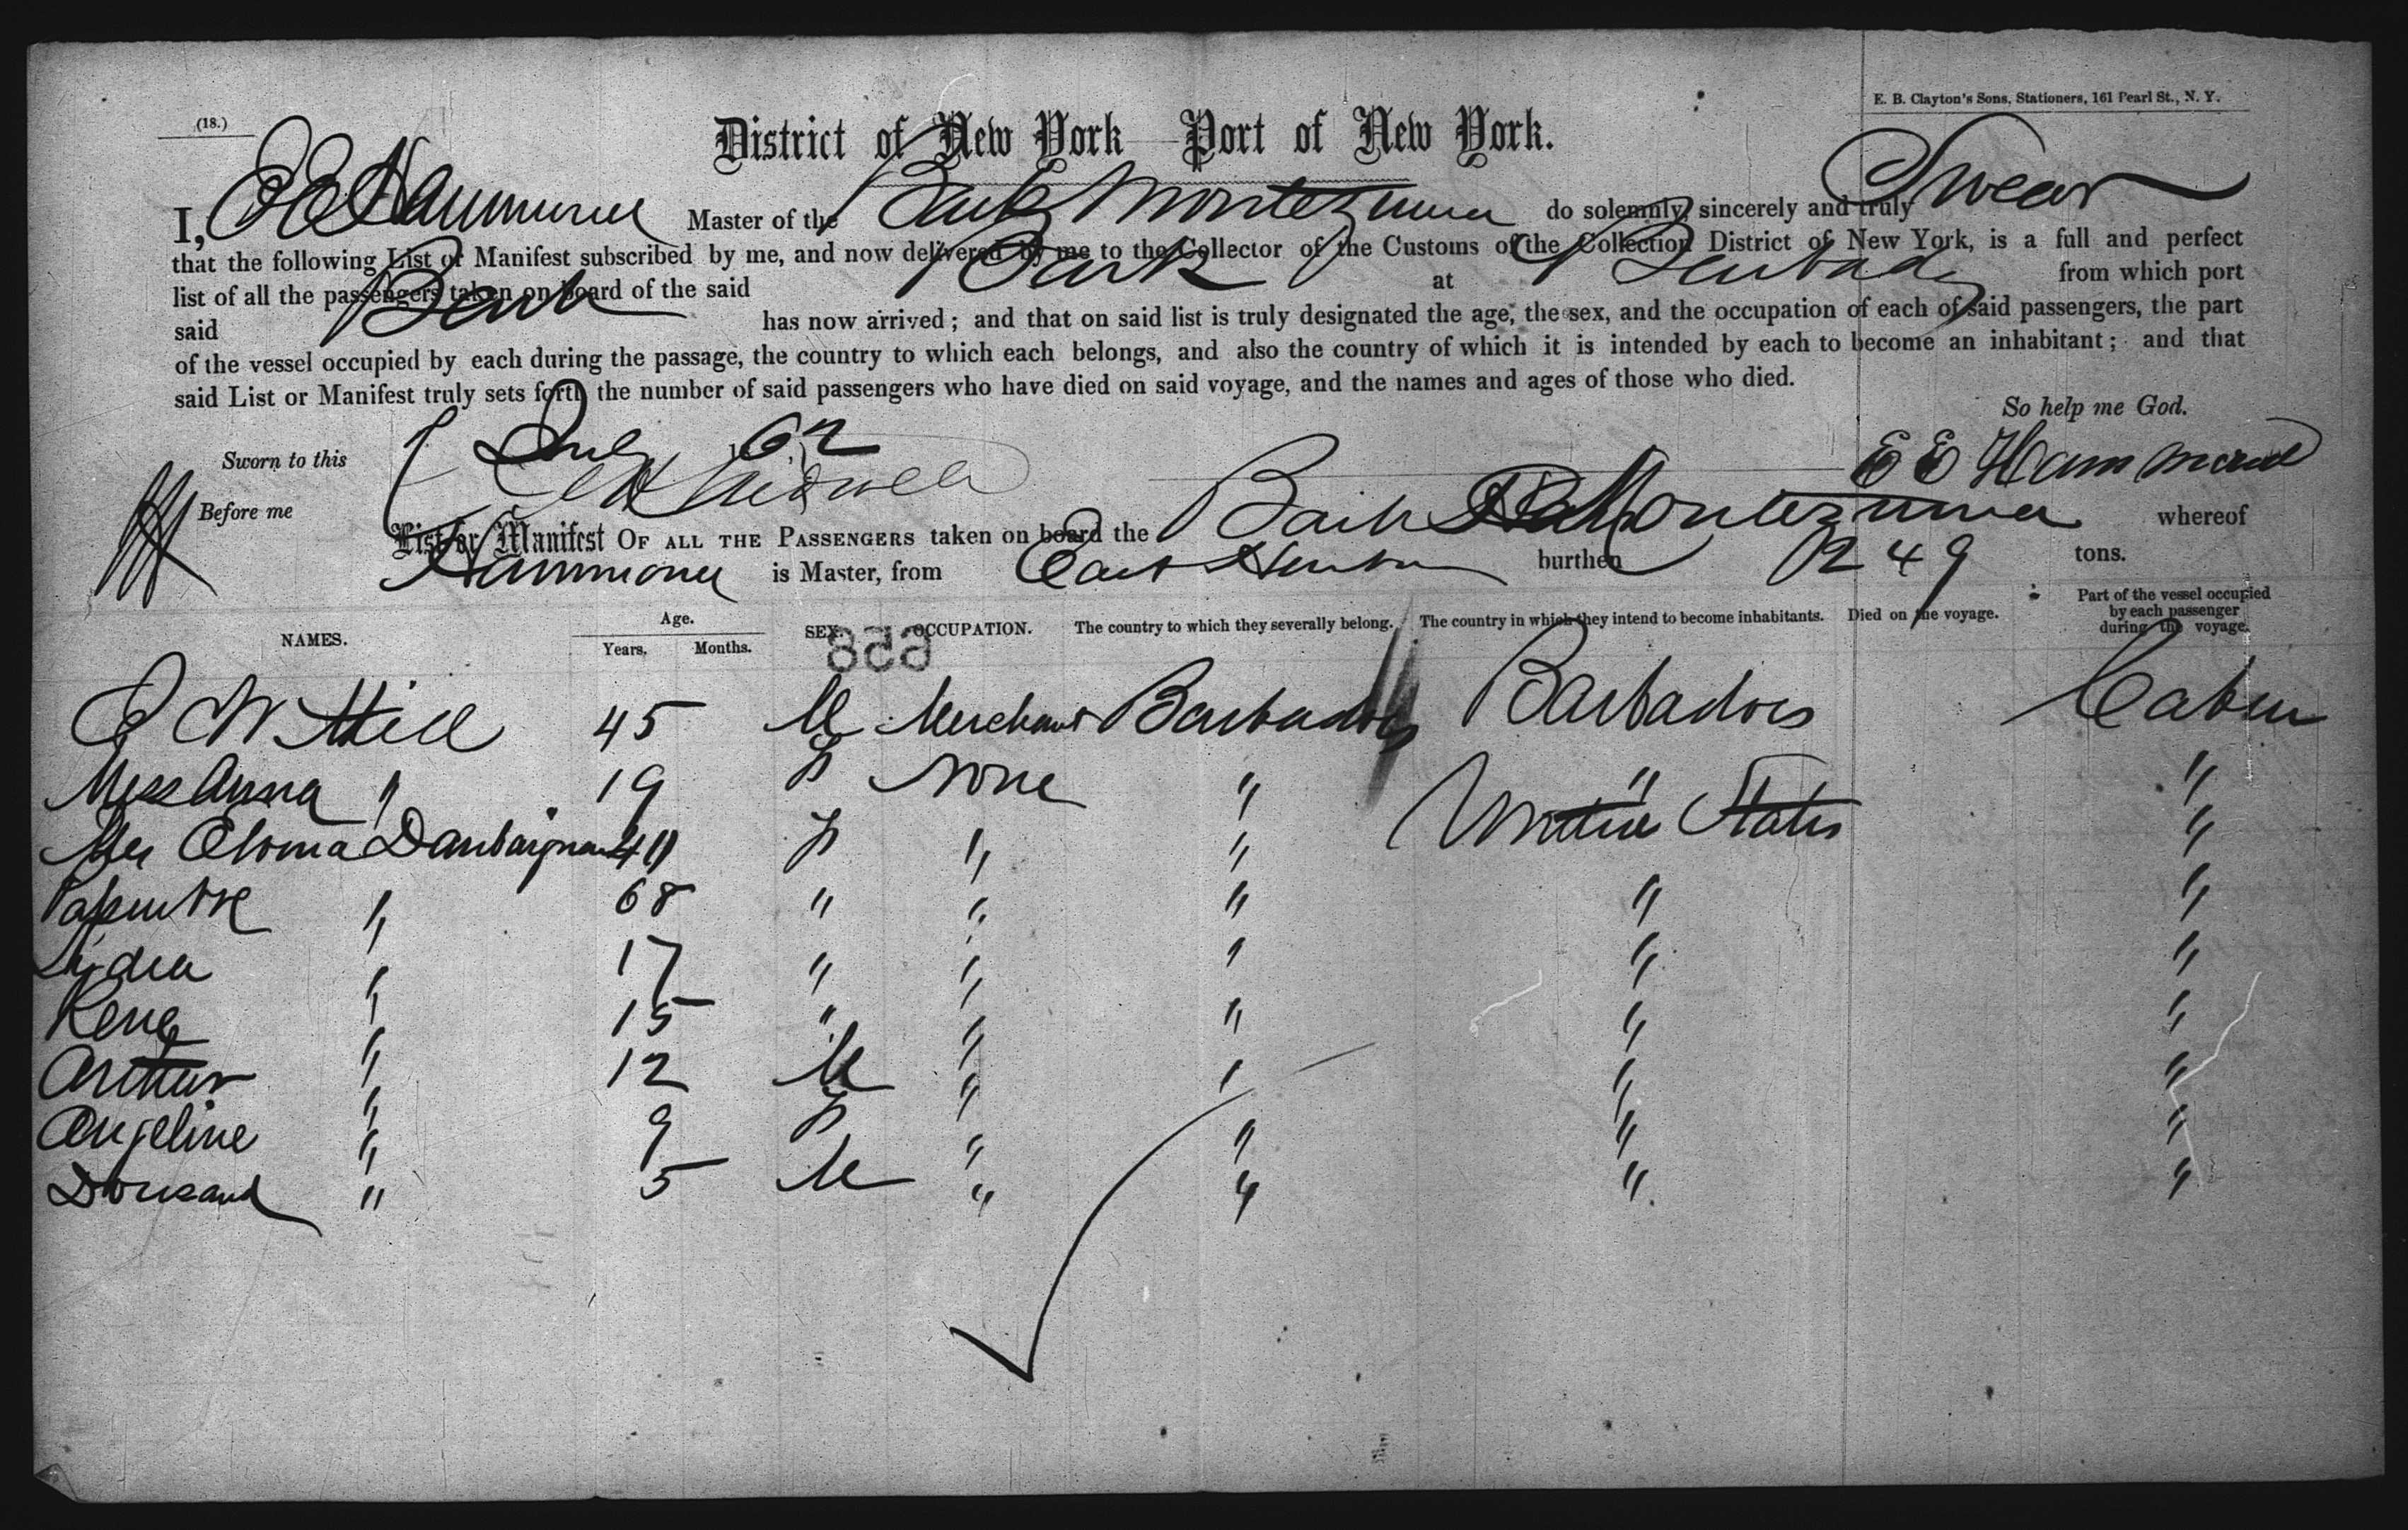 (18.)
E. B. Clayton's Sons, Stationers, 161 Pearl St., N. Y.
District of New York—Port of New York.
I, E E Hammond Master of the Bark Montezuma do solemnly, sincerely and truly Swear
that the following List or Manifest subscribed by me, and now delivered by me to the Collector of the Customs of the Collection District of New York, is a full and perfect
list of all the passengers taken on board of the said Bark at from which port
said Bark has now arrived; and that on said list is truly designated the age, the sex, and the occupation of each of said passengers, the part
of the vessel occupied by each during the passage, the country to which each belongs, and also the country of which it is intended by each to become an inhabitant; and that
said List or Manifest truly sets forth the number of said passengers who have died on said voyage, and the names and ages of those who died.
So help me God.
Sworn to this 62
E E Hammond
Before me
List or Manifest OF ALL THE PASSENGERS taken on board the Bark Montezuma whereof
Hammond is Master, from burthen 249 tons.
NAMES. Age. Years. Months. SEX. OCCUPATION. The country to which they severally belong. The country in which they intend to become inhabitants. Died on the voyage. Part of the vessel occupied by each passenger during the voyage.
859
W Hill 45 M Merchant Barbadoes Barbadoes Cabin
Miss Anna " 19 F None " " "
40 F " " United States "
" 68 " " " " "
Lydia " 17 " " " " "
Rene " 15 " " " " "
Arthur " 12 M " " " "
Angeline " 9 F " " " "
" 5 M " " " "